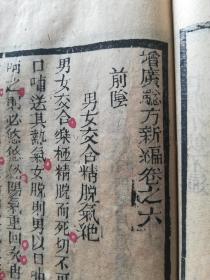 增廣驗方新編卷之六
前陰
男女交合精脫氣絕
男女交合樂極精脫而死切不可
口哺送其熱氣女脫則男以口哺
陽氣重回